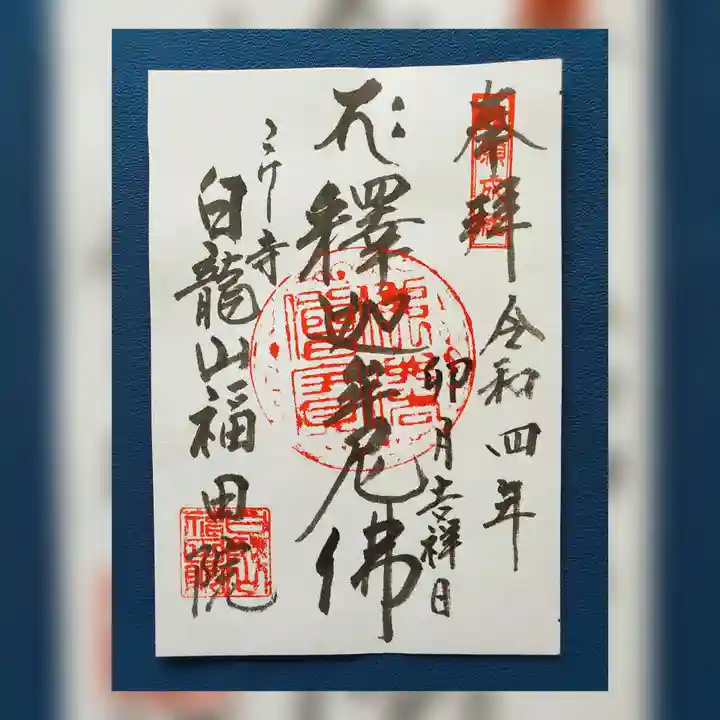 奉拝
令和四年
卯月吉祥日
釋迦牟尼佛
こけ寺
白龍山福田院